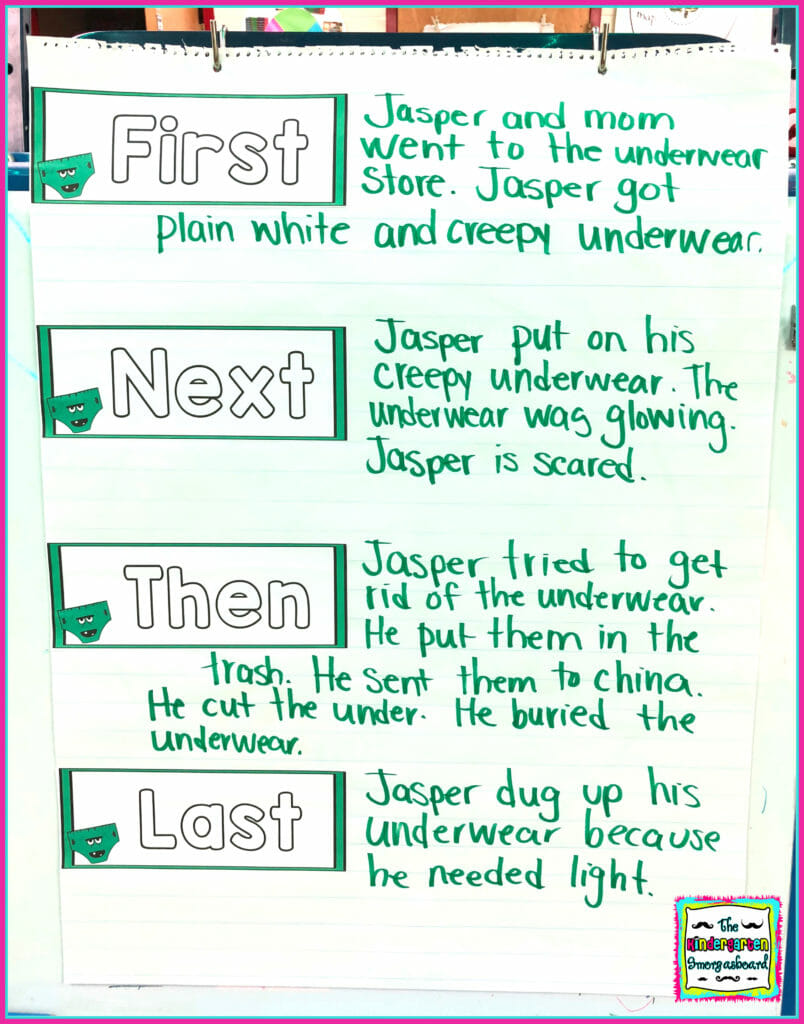 map
First
Jasper and mom
went to the underwear
store. Jasper got
plain white and creepy underwear.
Next
Jasper put on his
creepy underwear. The
underwear was glowing.
Jasper is scared.
Then
Jasper tried to get
rid of the underwear.
He put them in the
trash. He sent them to china.
He cut the under. He buried the
underwear.
Last
Jasper dug up his
underwear because
he needed light.
The
Kindergarten
Smorgasboard